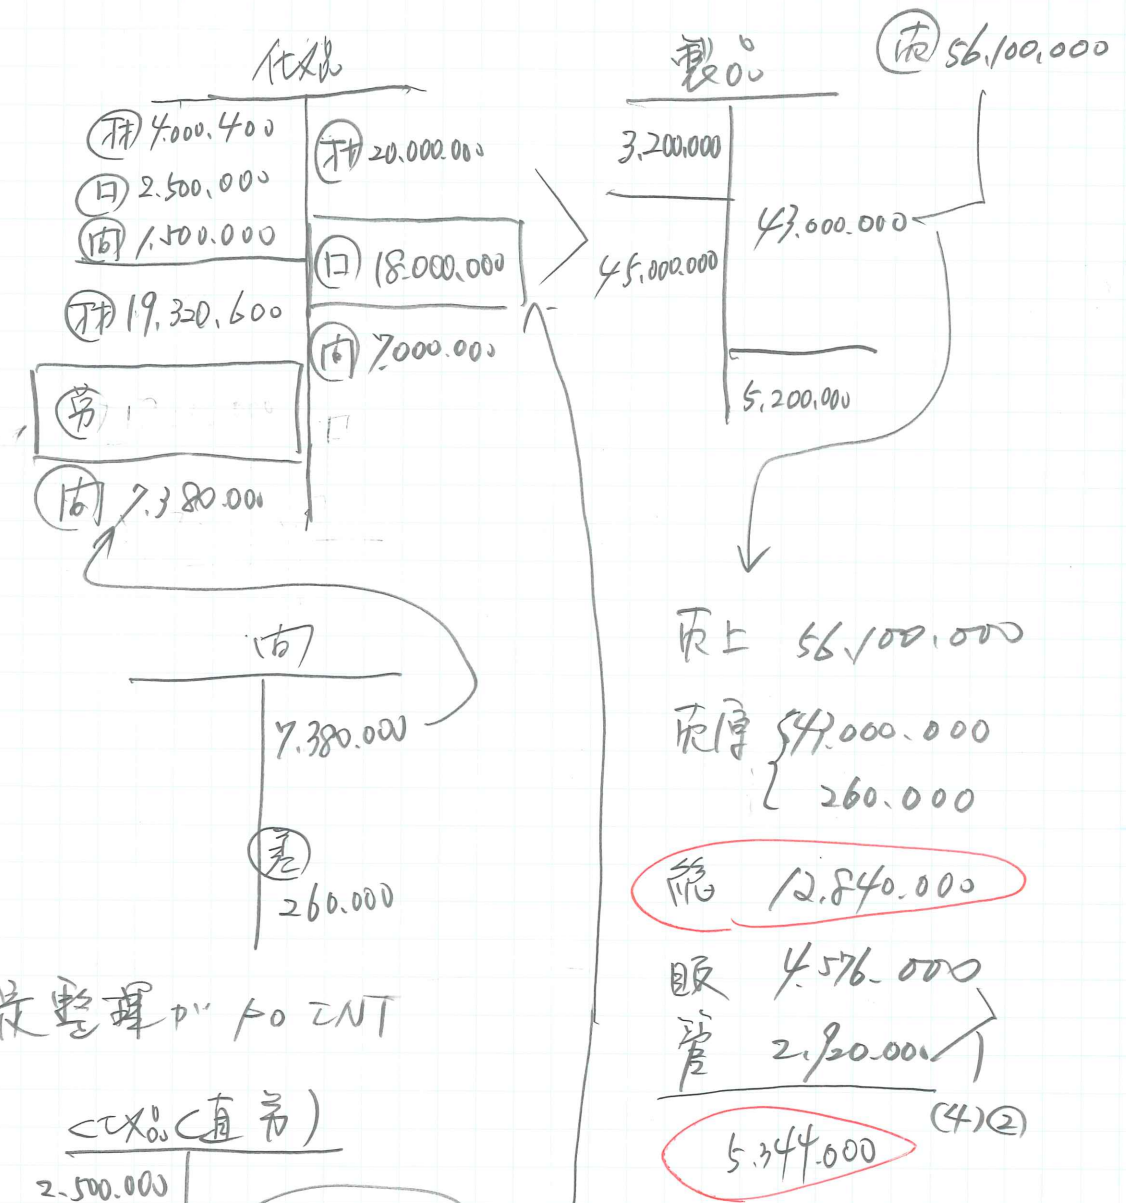 仕X品
材 4.000.400
口 2.500.000
間 1.500.000
材 19.320.600
労
間 7.380.000
材 20.000.000
口 18.000.000
間 7.000.000
製品
3.200.000
45.000.000
43.000.000
5.200.000
売 56.100.000
間
7.380.000
差
260.000
売上 56.100.000
売原 43.000.000
260.000
総 12.840.000
販 4.576.000
管 2.920.000
5.344.000
(4)②
整理が PoINT
(直労)
2.500.000